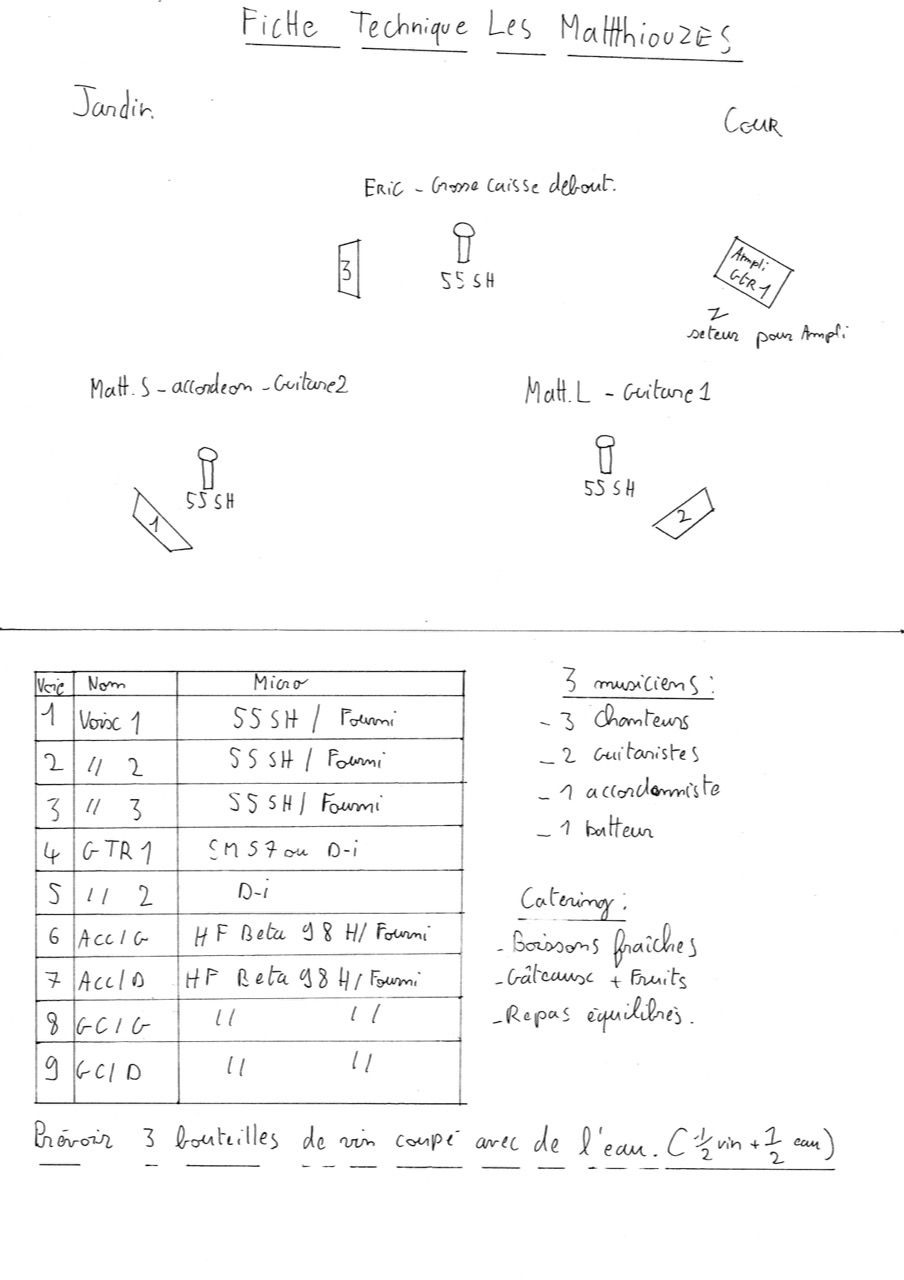 FicHe Technique Les MattthiouzES
Jardin.
CouR
ERiC - Grosse caisse debout.
3
55 SH
Ampli
GTR 1
seteur pour Ampli
Matt. S - accordeon - Guitare 2
Matt. L - Guitare 1
55 SH
1
55 SH
2
Voie Nom Micro
1 Voix 1 55 SH / Fourni
2 // 2 55 SH / Fourni
3 // 3 55 SH / Fourni
4 GTR 1 SM 57 ou D-i
5 // 2 D-i
6 Acc/G HF Beta 98 H/ Fourni
7 Acc/D HF Beta 98 H/ Fourni
8 GC/G // //
9 GC/D // //
3 musiciens :
- 3 Chanteurs
- 2 Guitaristes
- 1 accordonniste
- 1 batteur
Catering :
- Boissons fraîches
- Gâteaux + Fruits
- Repas équilibrés.
Prévoir 3 bouteilles de vin coupé avec de l'eau. (1/2 vin + 1/2 eau)